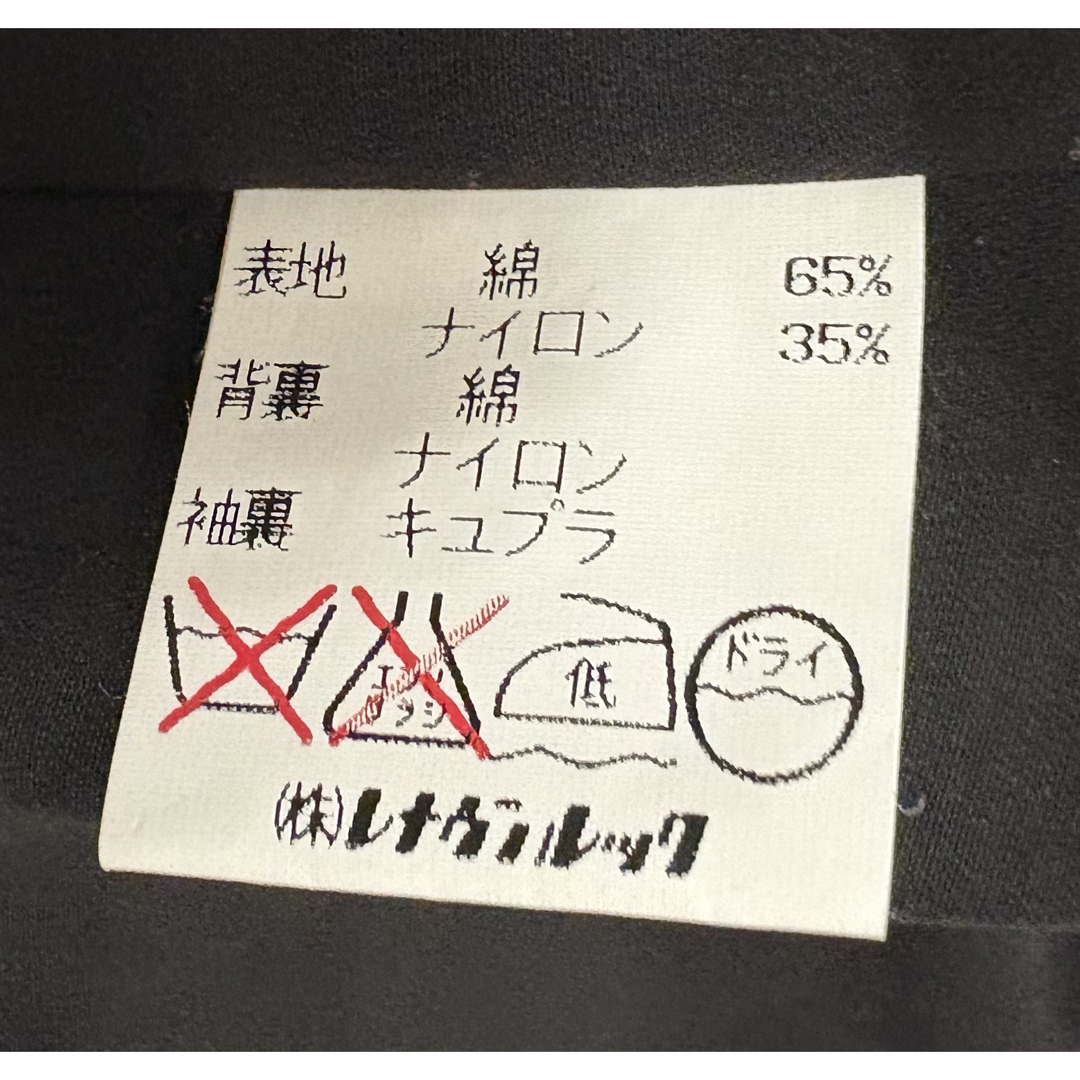 表地 綿 65%
ナイロン 35%
背裏 綿
ナイロン
袖裏 キュプラ
エンソ
サラシ
低
ドライ
(株)レナウンルック